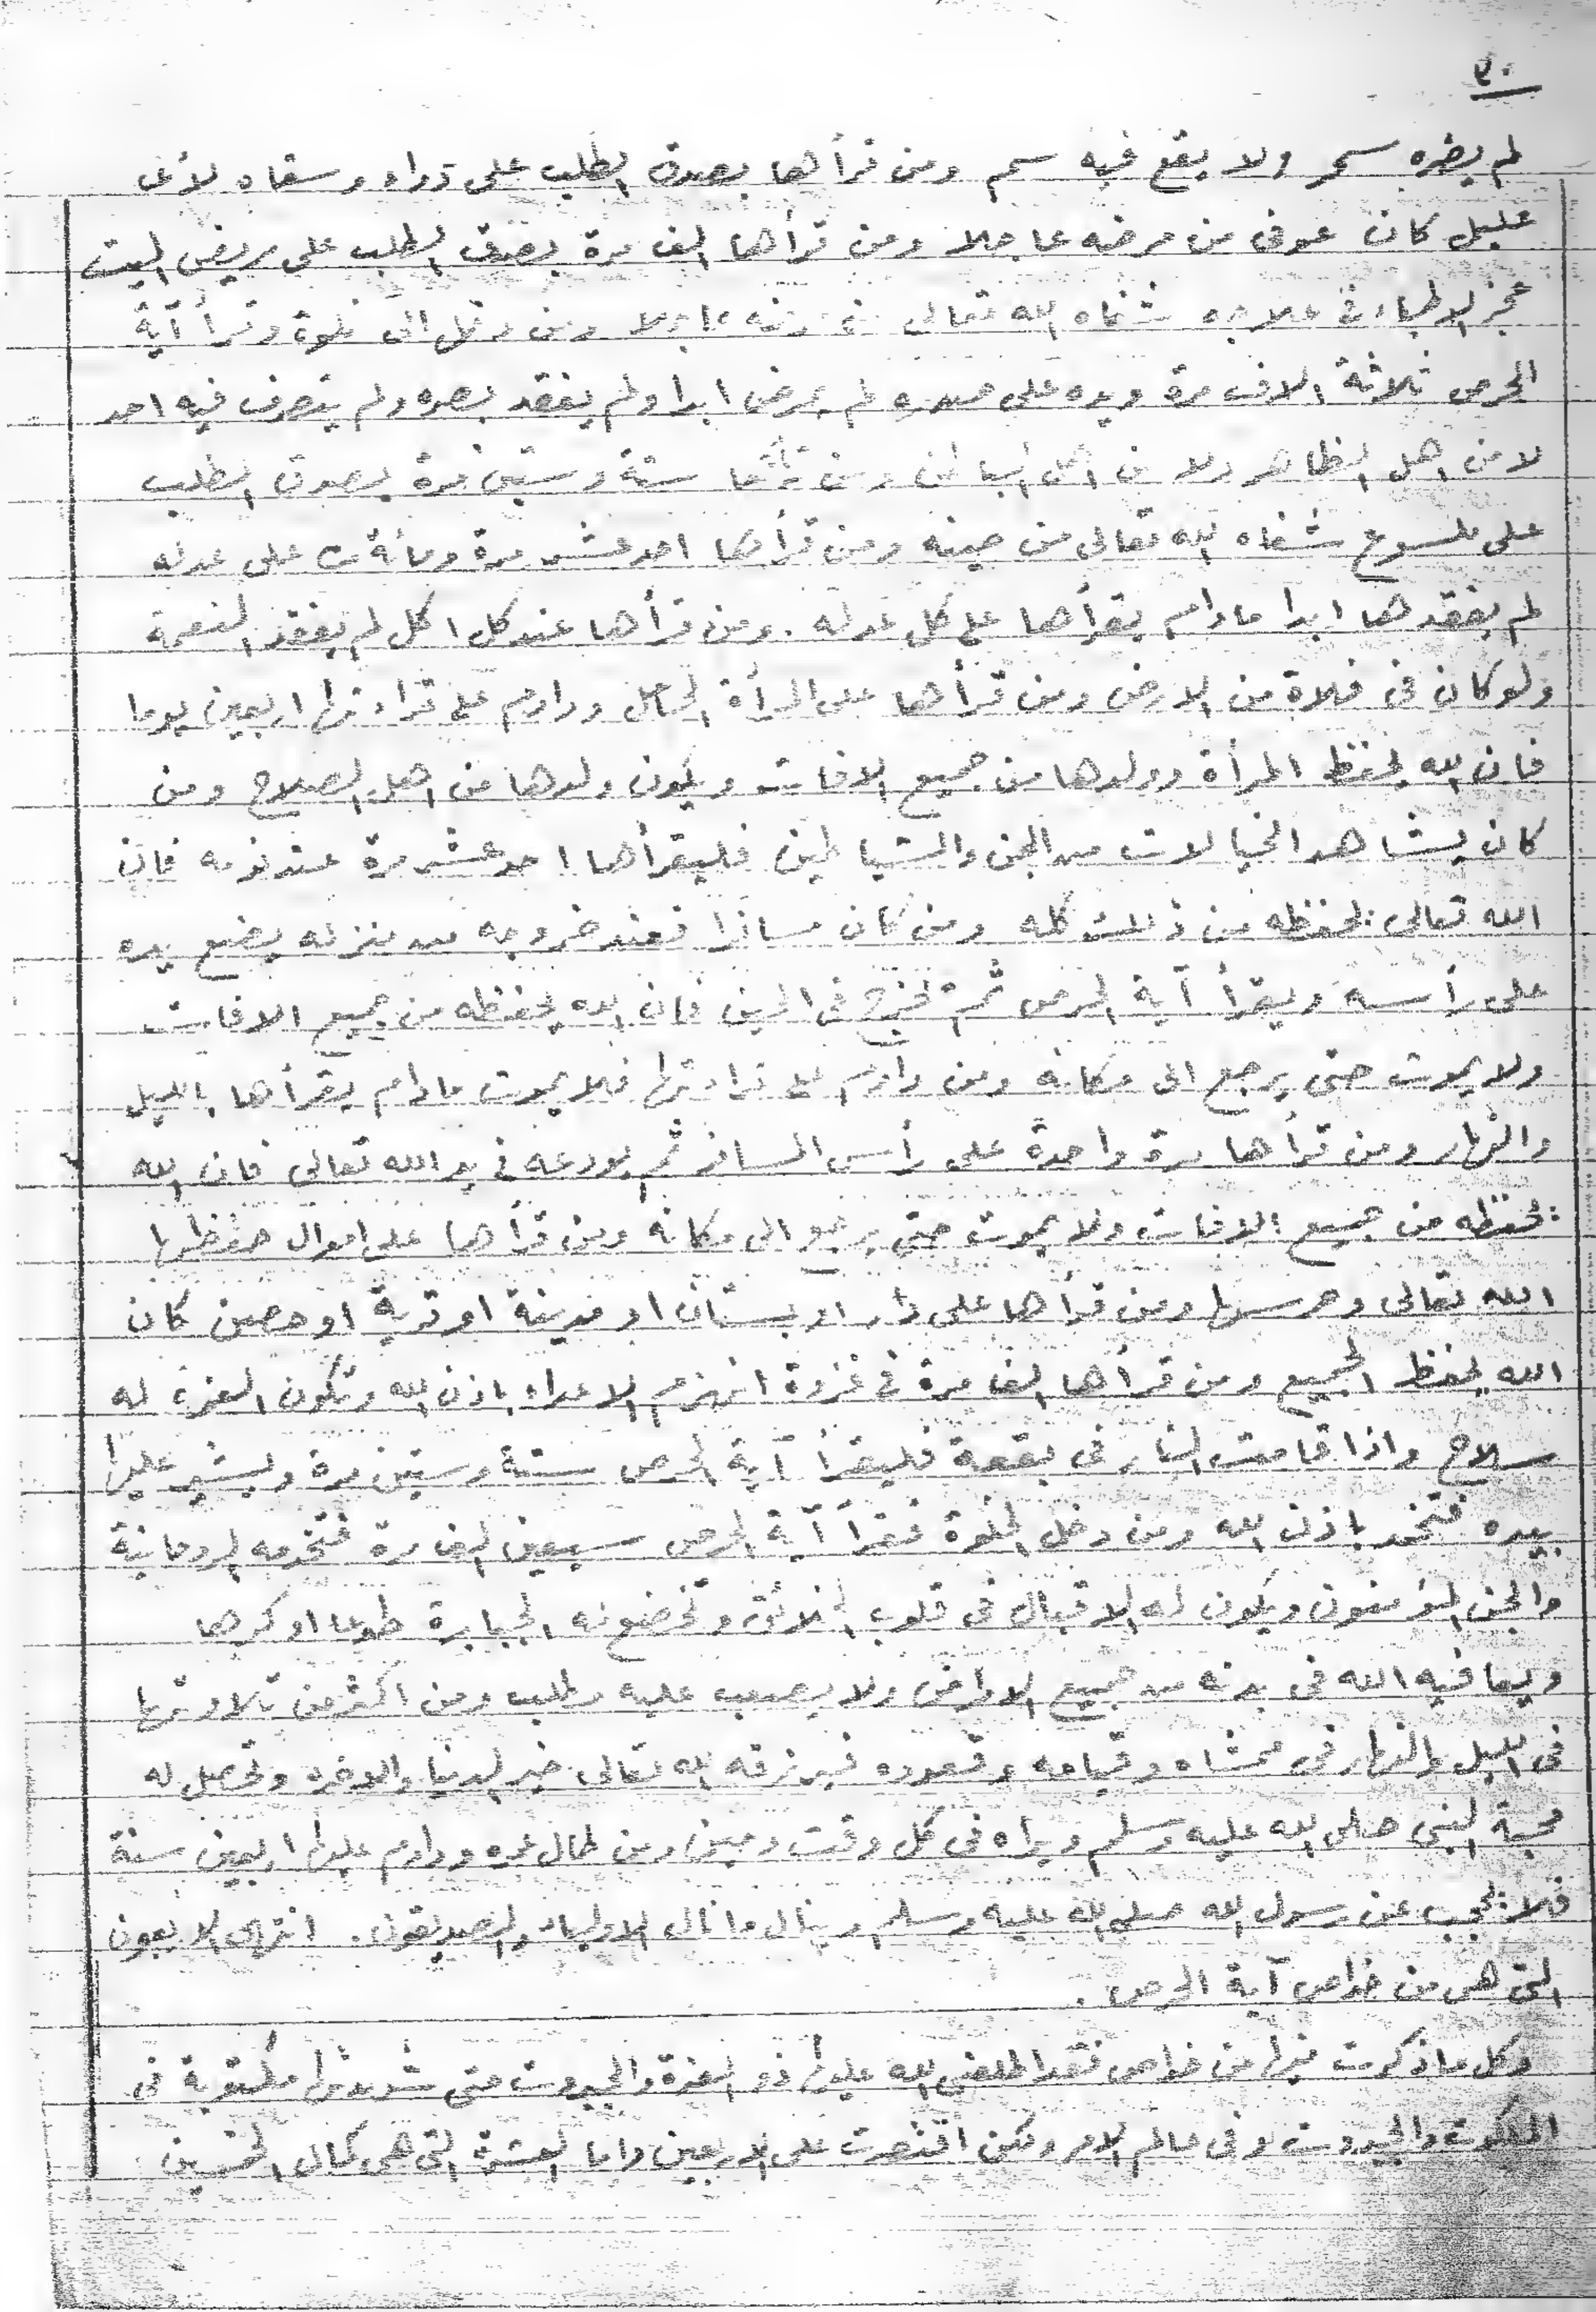 ٣٠
لم يضره سحر ولا يقع فيه سم ومن قرأها بصدق الطلب على دواء وسقاه لأى
عليل كان عوفى من مرضه عاجلا ومن قرأها الف مرة بصدق الطلب على مريض
عجز الاطباء فى علاجه شفاه الله تعالى عاجلا ومن دخل الى خلوة وقرأ آية
الحرص ثلاثة الاف مرة ويده على لم يمرض ابدا ولم يفقد بصره ولم يتصرف فيه احد
لا من اهل الظاهر ولا من اهل الباطن ومن ستة وستين مرة بصدق الطلب
على ملسوع شفاه الله تعالى من حينه ومن قرأها احد عشر مرة ومائة على
لم يفقدها ابدا مادام يقرأها على كل ومن قرأها عند كل اكل لم يفقد النعمة
ولو كان فى فلاة من الارض ومن قرأها على المرأة الحامل وداوم على قراءتها اربعين يوما
فان الله يحفظ المرأة وولدها من جميع الافات ويكون ولدها من اهل الصلاح ومن
كان يشاهد الخيالات من الجن والشياطين فليقرأها احد عشر مرة عند نومه فان
الله تعالى يحفظه من ذلك كله ومن كان مسافرا فعند خروجه من منزله يضع يده
على رأسه ويقرأ آية الحرص ثم يخرج فى الحين فان الله يحفظه من جميع الافات
ولا يموت حتى يرجع الى مكانه ومن داوم على قراءتها فلا يموت مادام يقرأها بالليل
والنهار ومن قرأها مرة واحدة على رأس المسافر ثم يودعه فى يد الله تعالى فان الله
يحفظه من جميع الافات ولا يموت حتى يرجع الى مكانه ومن قرأها على اموال حفظها
الله تعالى وحرسها ومن قرأها على دار او بستان او مدينة او قرية او حصن كان
الله يحفظ الجميع ومن قرأها الف مرة فى غزوة انهزم الاعداء باذن الله وتكون العزة له
سلاح واذا قامت النار فى بقعة فليقرأ آية الحرص ستة وستين مرة ويشير عليها
بيده فتخمد باذن الله ومن دخل الخلوة فقرأ آية الحرص سبعين الف مرة فتخدمه الروحانية
والجن المؤمنون ويكون له الاقبال فى قلوب الخلائق وتخضع له الجبابرة طوعا او كرها
ويعافيه الله فى بدنه من جميع الامراض ولا يصعب عليه مطلب ومن اكثر من تلاوتها
فى الليل والنهار فى ممشاه وقيامه وقعوده فيرزقه الله تعالى خير الدنيا والاخرة وتحصل له
محبة النبى صلى الله عليه وسلم ويراه فى كل وقت وحين ومن طال عمره وداوم عليها اربعين سنة
فلا يحجب عن رسول الله صلى الله عليه وسلم وينال ما نال الاولياء والصديقون . انتهى الاربعون
التى هى من خواص آية الحرص .
وكل ما ذكرت فيها من خواص فقد اطلعنى الله عليها ذو العزة والجبروت حتى شهدتها مكتوبة فى
الملكوت والجبروت وفى عالم الامر ولكن اقتصرت على الاربعين واما العشرة التى هى كمال الخمسين